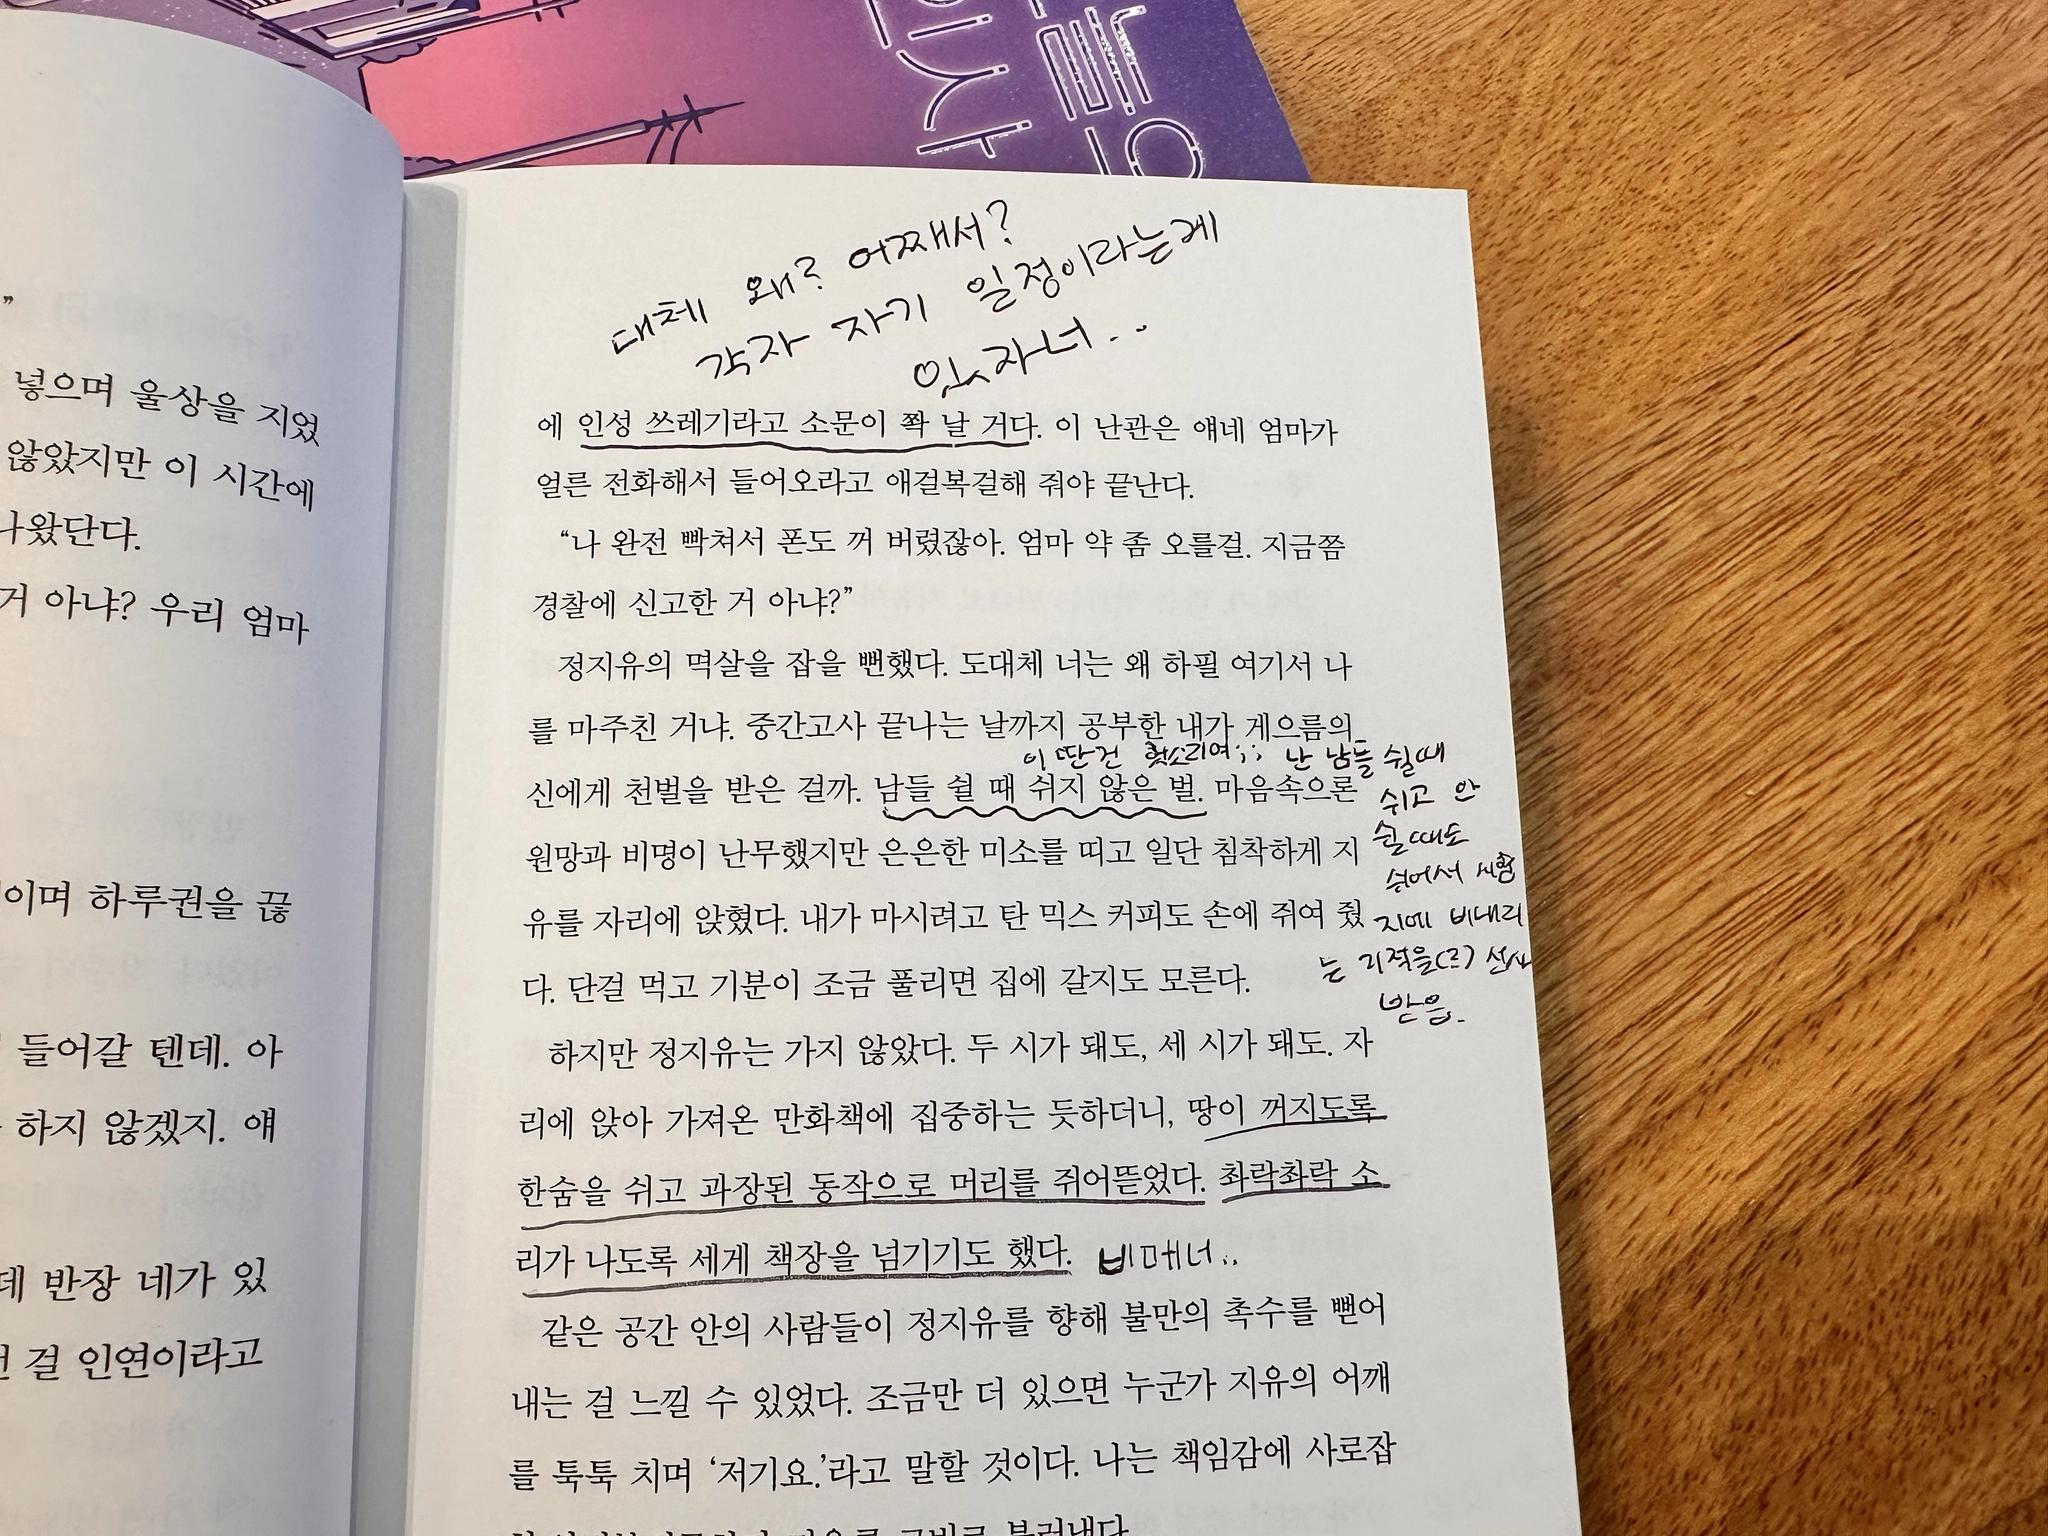 대체 왜? 어째서?
각자 자기 일정이라는게
있자너..
에 인성 쓰레기라고 소문이 쫙 날 거다. 이 난관은 얘네 엄마가
얼른 전화해서 들어오라고 애걸복걸해 줘야 끝난다.
“나 완전 빡쳐서 폰도 꺼 버렸잖아. 엄마 약 좀 오를걸. 지금쯤
경찰에 신고한 거 아냐?”
정지유의 멱살을 잡을 뻔했다. 도대체 너는 왜 하필 여기서 나
를 마주친 거냐. 중간고사 끝나는 날까지 공부한 내가 게으름의
이 딴건 헛소리여;; 난 남들 쉴때
신에게 천벌을 받은 걸까. 남들 쉴 때 쉬지 않은 벌. 마음속으론
쉬고 안
원망과 비명이 난무했지만 은은한 미소를 띠고 일단 침착하게 지
쉴때도
쉬어서 시험
유를 자리에 앉혔다. 내가 마시려고 탄 믹스 커피도 손에 쥐여 줬
지에 비내리
다. 단걸 먹고 기분이 조금 풀리면 집에 갈지도 모른다.
는 기적을(ㄹ) 선사
받음.
하지만 정지유는 가지 않았다. 두 시가 돼도, 세 시가 돼도. 자
리에 앉아 가져온 만화책에 집중하는 듯하더니, 땅이 꺼지도록
한숨을 쉬고 과장된 동작으로 머리를 쥐어뜯었다. 촤락촤락 소
리가 나도록 세게 책장을 넘기기도 했다. 비매너..
같은 공간 안의 사람들이 정지유를 향해 불만의 촉수를 뻗어
내는 걸 느낄 수 있었다. 조금만 더 있으면 누군가 지유의 어깨
를 툭툭 치며 ‘저기요.’라고 말할 것이다. 나는 책임감에 사로잡
”
넣으며 울상을 지었
않았지만 이 시간에
나왔단다.
거 아냐? 우리 엄마
이며 하루권을 끊
들어갈 텐데. 아
하지 않겠지. 얘
데 반장 네가 있
걸 인연이라고